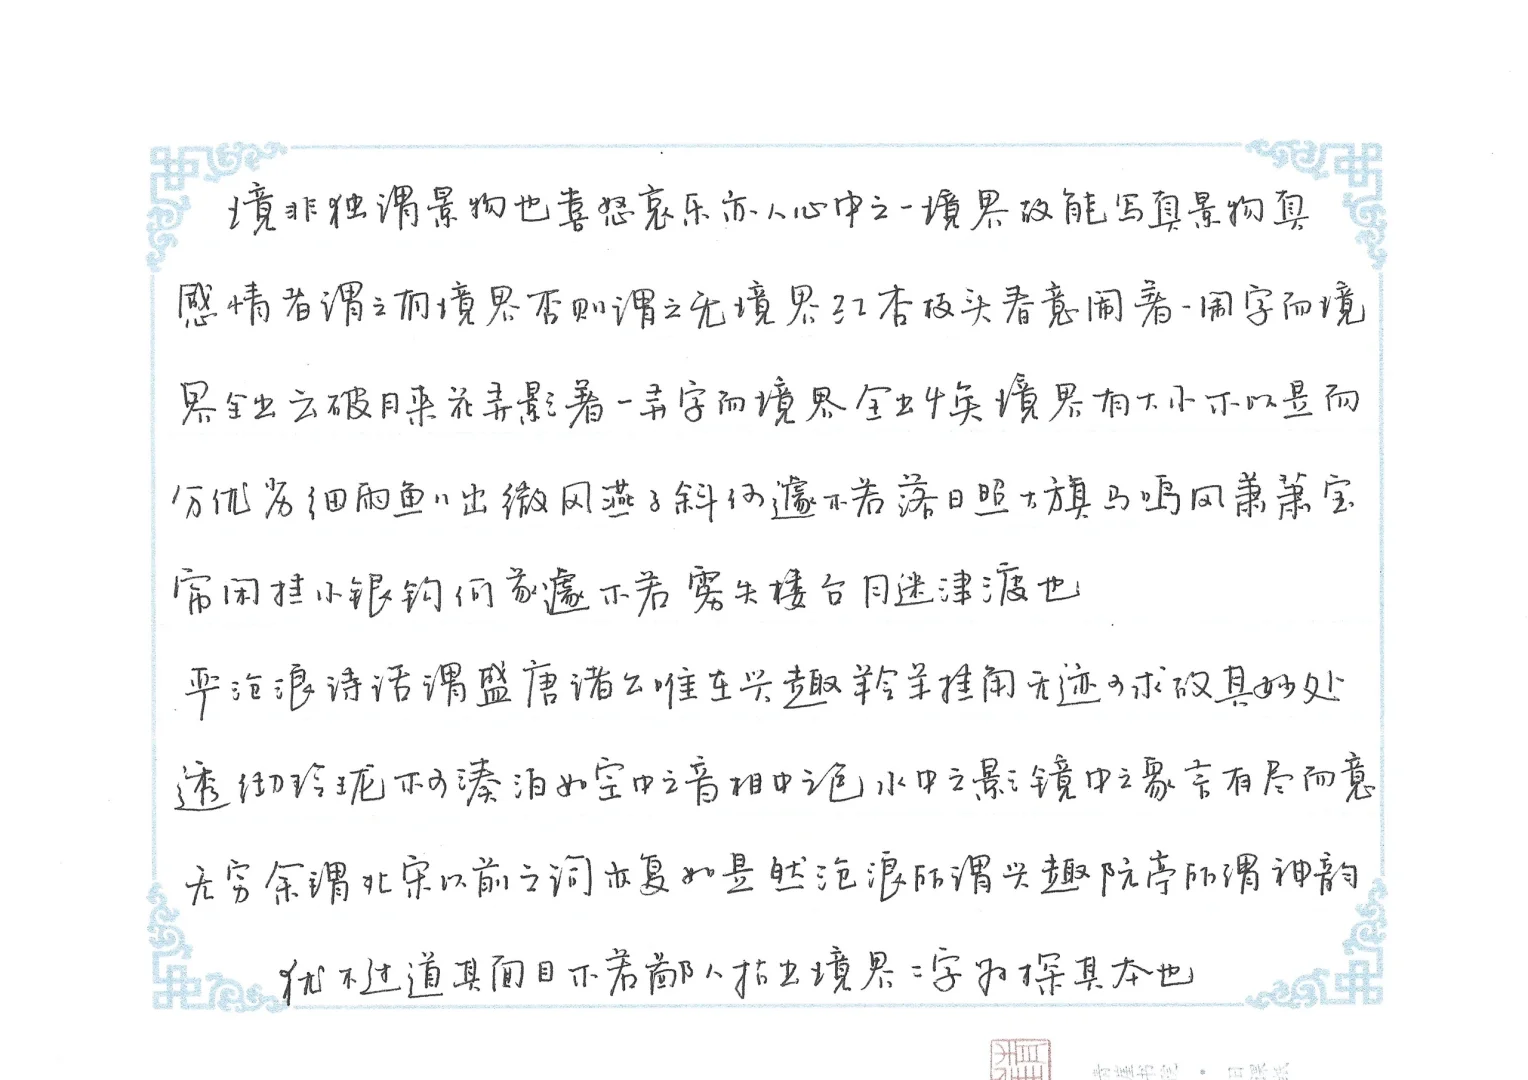 境非独谓景物也喜怒哀乐亦人心中之一境界故能写真景物真
感情者谓之有境界否则谓之无境界红杏枝头春意闹著一闹字而境
界全出云破月来花弄影著一弄字而境界全出矣境界有大小不以是而
分优劣细雨鱼儿出微风燕子斜何遽不若落日照大旗马鸣风萧萧宝
帘闲挂小银钩何遽不若雾失楼台月迷津渡也
严沧浪诗话谓盛唐诸公唯在兴趣羚羊挂角无迹可求故其妙处
透彻玲珑不可凑泊如空中之音相中之色水中之影镜中之象言有尽而意
无穷余谓北宋以前之词亦复如是然沧浪所谓兴趣阮亭所谓神韵
犹不过道其面目不若鄙人拈出境界二字为探其本也